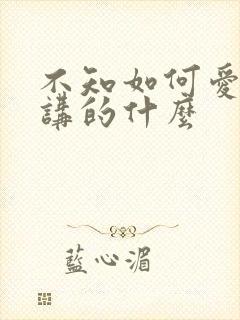 不知如何愛
講的什麼
藍心湄